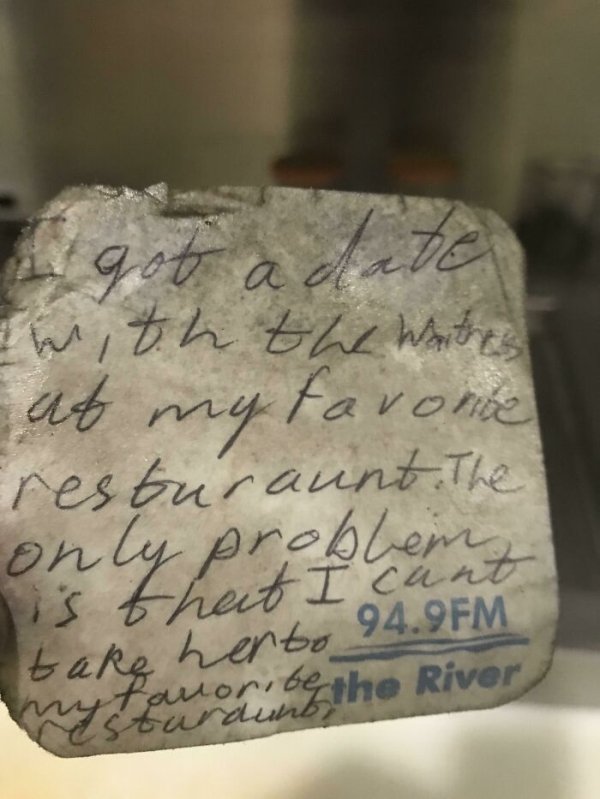 I got a date
with the Waitress
at my favorite
resturaunt. The
only problem
is that I cant
take her to
my favorite
resturaunt.
94.9FM
the River